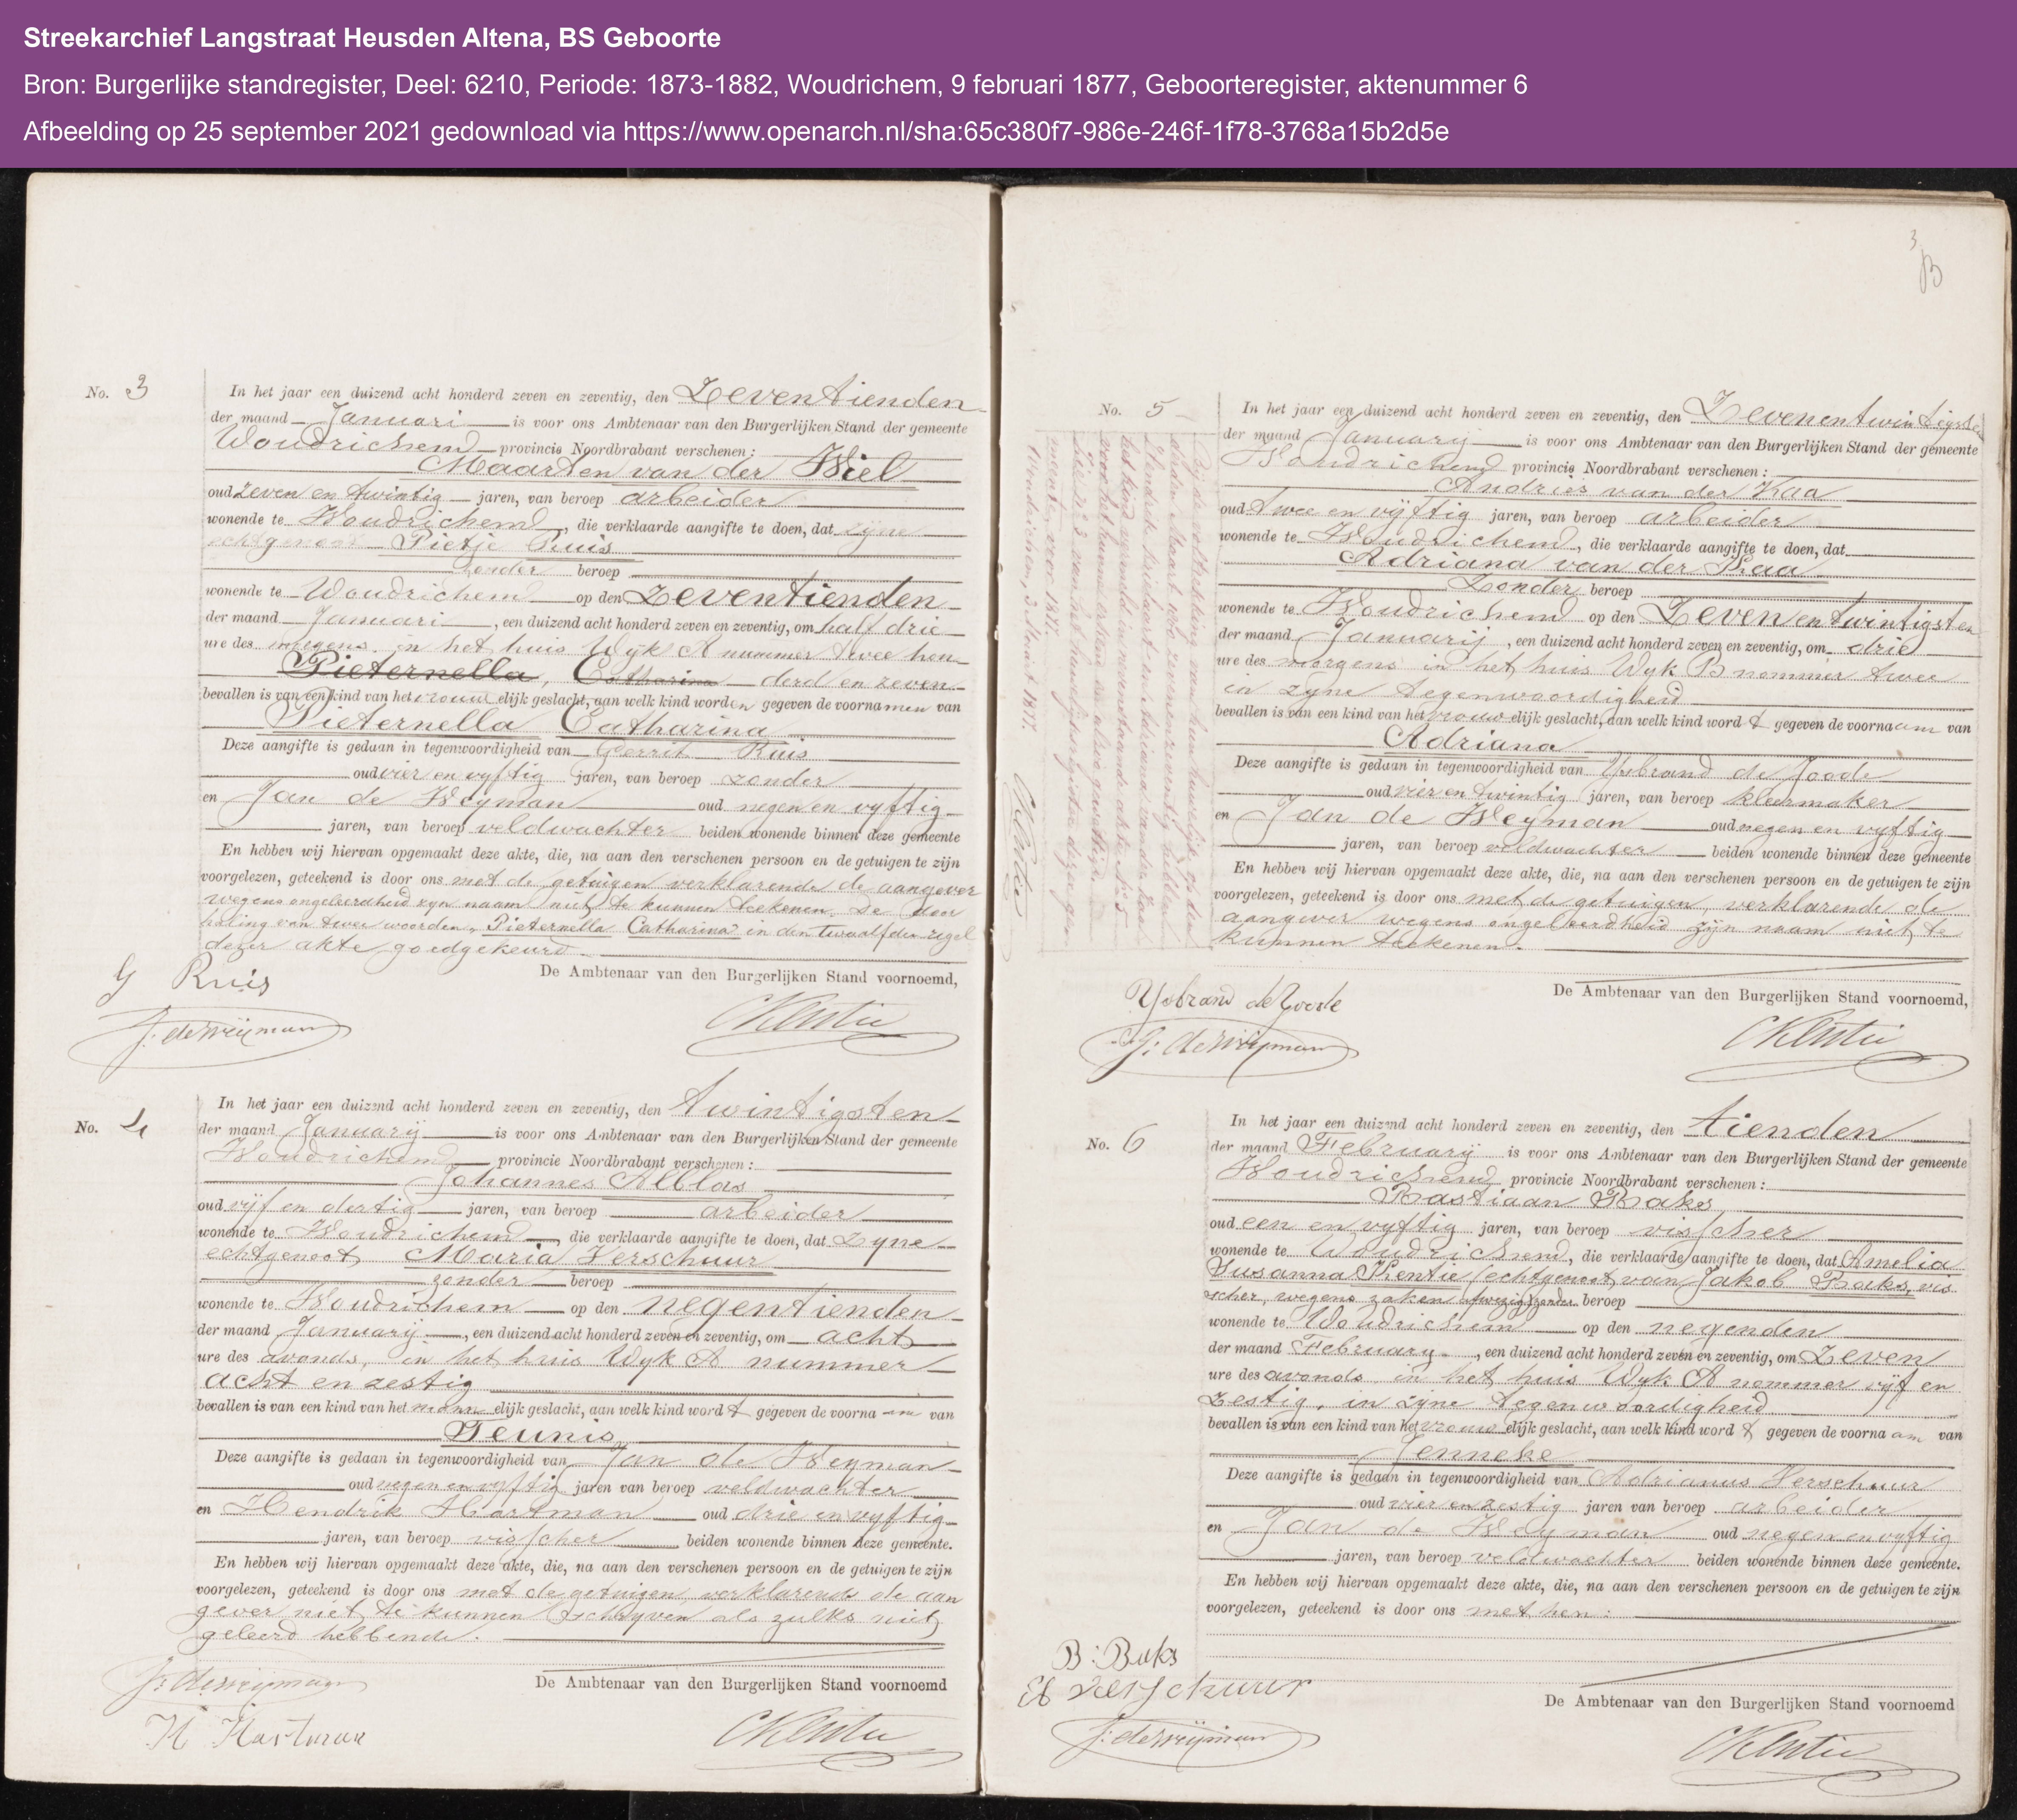 Streekarchief Langstraat Heusden Altena, BS Geboorte
Bron: Burgerlijke standregister, Deel: 6210, Periode: 1873-1882, Woudrichem, 9 februari 1877, Geboorteregister, aktenummer 6
Afbeelding op 25 september 2021 gedownload via https://www.openarch.nl/sha:65c380f7-986e-246f-1f78-3768a15b2d5e
No. 3
In het jaar een duizend acht honderd zeven en zeventig, den Zeventienden
der maand Januari is voor ons Ambtenaar van den Burgerlijken Stand der gemeente
Woudrichem provincie Noordbrabant verschenen:
Maarten van der Wiel
oud zeven en twintig jaren, van beroep arbeider
wonende te Woudrichem, die verklaarde aangifte te doen, dat zijne
echtgenoot Pietje Ruis
zonder beroep
wonende te Woudrichem op den Zeventienden
der maand Januari, een duizend acht honderd zeven en zeventig, om half drie
ure des morgens in het huis Wyk A nummer twee hon-
Pieternella, Catharina derd en zeven
bevallen is van een kind van het vrouwelijk geslacht, aan welk kind worden gegeven de voornamen van
Pieternella Catharina
Deze aangifte is gedaan in tegenwoordigheid van Gerrit Ruis
oud vier en vyftig jaren, van beroep zonder
en Jan de Weyman oud negen en vyftig
jaren, van beroep veldwachter beiden wonende binnen deze gemeente
En hebben wij hiervan opgemaakt deze akte, die, na aan den verschenen persoon en de getuigen te zijn
voorgelezen, geteekend is door ons met de getuigen verklarende de aangever
wegens ongeleerdheid zyn naam niet te kunnen teekenen. De door
haling van twee woorden, Pieternella Catharina in den twaalfden regel
dezer akte goedgekeurd.
G Ruis
De Ambtenaar van den Burgerlijken Stand voornoemd,
J: de Weijman
CKentie
No. 4
In het jaar een duizend acht honderd zeven en zeventig, den twintigsten
der maand Januarij is voor ons Ambtenaar van den Burgerlijken Stand der gemeente
Woudrichem provincie Noordbrabant verschenen:
Johannes Alblas
oud vijf en dertig jaren, van beroep arbeider
wonende te Woudrichem, die verklaarde aangifte te doen, dat zyne
echtgenoot Maria Verschuur
zonder beroep
wonende te Woudrichem op den negentienden
der maand Januarij, een duizend acht honderd zeven en zeventig, om acht
ure des avonds, in het huis Wyk A nummer
acht en zestig
bevallen is van een kind van het mannelijk geslacht, aan welk kind wordt gegeven de voornaam van
Teunis
Deze aangifte is gedaan in tegenwoordigheid van Jan de Weyman
oud negen en vyftig jaren van beroep veldwachter
en Hendrik Hartman oud drie en vyftig
jaren, van beroep visscher beiden wonende binnen deze gemeente.
En hebben wij hiervan opgemaakt deze akte, die, na aan den verschenen persoon en de getuigen te zijn
voorgelezen, geteekend is door ons met de getuigen, verklarende de aan
gever niet te kunnen schryven als zulks niet
geleerd hebbende.
J: de Weijman
De Ambtenaar van den Burgerlijken Stand voornoemd
H Hartman
CKentie
3
B
No. 5
In het jaar een duizend acht honderd zeven en zeventig, den Zevenentwintigsten
der maand Januarij is voor ons Ambtenaar van den Burgerlijken Stand der gemeente
Woudrichem provincie Noordbrabant verschenen:
Andries van der Kaa
oud twee en vijftig jaren, van beroep arbeider
wonende te Woudrichem, die verklaarde aangifte te doen, dat
Adriana van der Kaa
Zonder beroep
wonende te Woudrichem op den Zeven en twintigsten
der maand Januarij, een duizend acht honderd zeven en zeventig, om drie
ure des morgens in het huis Wyk B nommer twee
in zyne tegenwoordigheid
bevallen is van een kind van het vrouwelijk geslacht, aan welk kind wordt gegeven de voornaam van
Adriana
Deze aangifte is gedaan in tegenwoordigheid van Ysbrand de Joode
oud vier en twintig jaren, van beroep kleermaker
en Jan de Weyman oud negen en vyftig
jaren, van beroep veldwachter beiden wonende binnen deze gemeente
En hebben wij hiervan opgemaakt deze akte, die, na aan den verschenen persoon en de getuigen te zijn
voorgelezen, geteekend is door ons met de getuigen, verklarende de
aangever wegens ongeleerdheid zijn naam niet te
kunnen teekenen.
Ysbrand de Joode
De Ambtenaar van den Burgerlijken Stand voornoemd,
J: de Weijman
CKentie
No. 6
In het jaar een duizend acht honderd zeven en zeventig, den tienden
der maand February is voor ons Ambtenaar van den Burgerlijken Stand der gemeente
Woudrichem provincie Noordbrabant verschenen:
Bastiaan Baks
oud een en vyftig jaren, van beroep visscher
wonende te Woudrichem, die verklaarde aangifte te doen, dat Amelia
Susanna Kentie (echtgenoot van Jakob Baks, vis
scher, wegens zaken afwezig) zonder beroep
wonende te Woudrichem op den negenden
der maand February, een duizend acht honderd zeven en zeventig, om Zeven
ure des avonds in het huis Wyk A nommer vijf en
zestig, in zijne tegenwoordigheid
bevallen is van een kind van het vrouwelijk geslacht, aan welk kind wordt gegeven de voornaam van
Jenneke
Deze aangifte is gedaan in tegenwoordigheid van Adrianus Verschuur
oud vier en zestig jaren van beroep arbeider
en Jan de Weyman oud negen en vyftig
jaren, van beroep veldwachter beiden wonende binnen deze gemeente.
En hebben wij hiervan opgemaakt deze akte, die, na aan den verschenen persoon en de getuigen te zijn
voorgelezen, geteekend is door ons met hen:
B: Baks
verschuur
De Ambtenaar van den Burgerlijken Stand voornoemd
J: de Weijman
CKentie